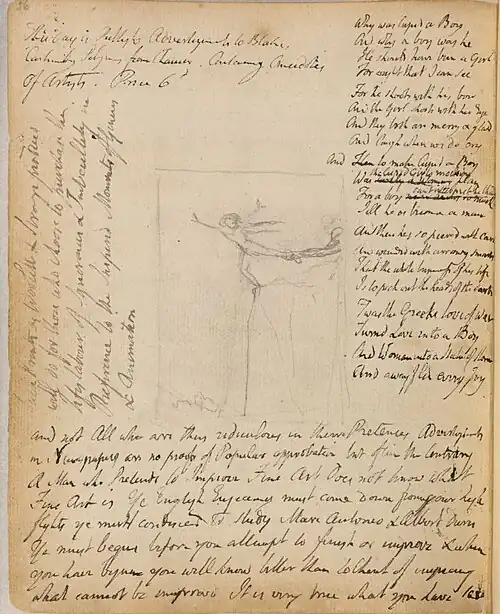 56
This day is Publishd Advertizements to Blakes
Canterbury Pilgrims from Chaucer. Containing Anecdotes
of Artists. Price 6d
Why was Cupid a Boy
And why a boy was he
He should have been a Girl
For ought that I can see
For he shoots with his bow
And the Girl shoots with her Eye
And they both are merry & glad
And laugh when we do cry
And to make Cupid a Boy
Was the Cupid Girls mocking plan
For a boy cant interpret the thing
Till he is become a man
And then hes so piercd with care
And wounded with arrowy smarts
That the whole business of his life
Is to pick out the heads of the darts
Twas the Greeks love of war
Turnd Love into a Boy
And Woman into a Statue of Stone
And away fled every Joy
will be for those who choose to purchase
labour of ignorance & imbecility in
Preference to the Inspired Moments of Genius
& Animation
and not All who are thus ridiculous in their Pretences Advertizements
in Newspapers are no proofs of Popular approbation but often the Contrary
A Man who Pretends to Improve Fine Art Does not know what
Fine Art is Ye English Engravers must come down from your high
flights ye must condescend to study Marc Antonio & Albert Durer
Ye must begin before you attempt to finish or improve & when
you have begun you will know better than to think of improving
what cannot be improvd It is very true what you have